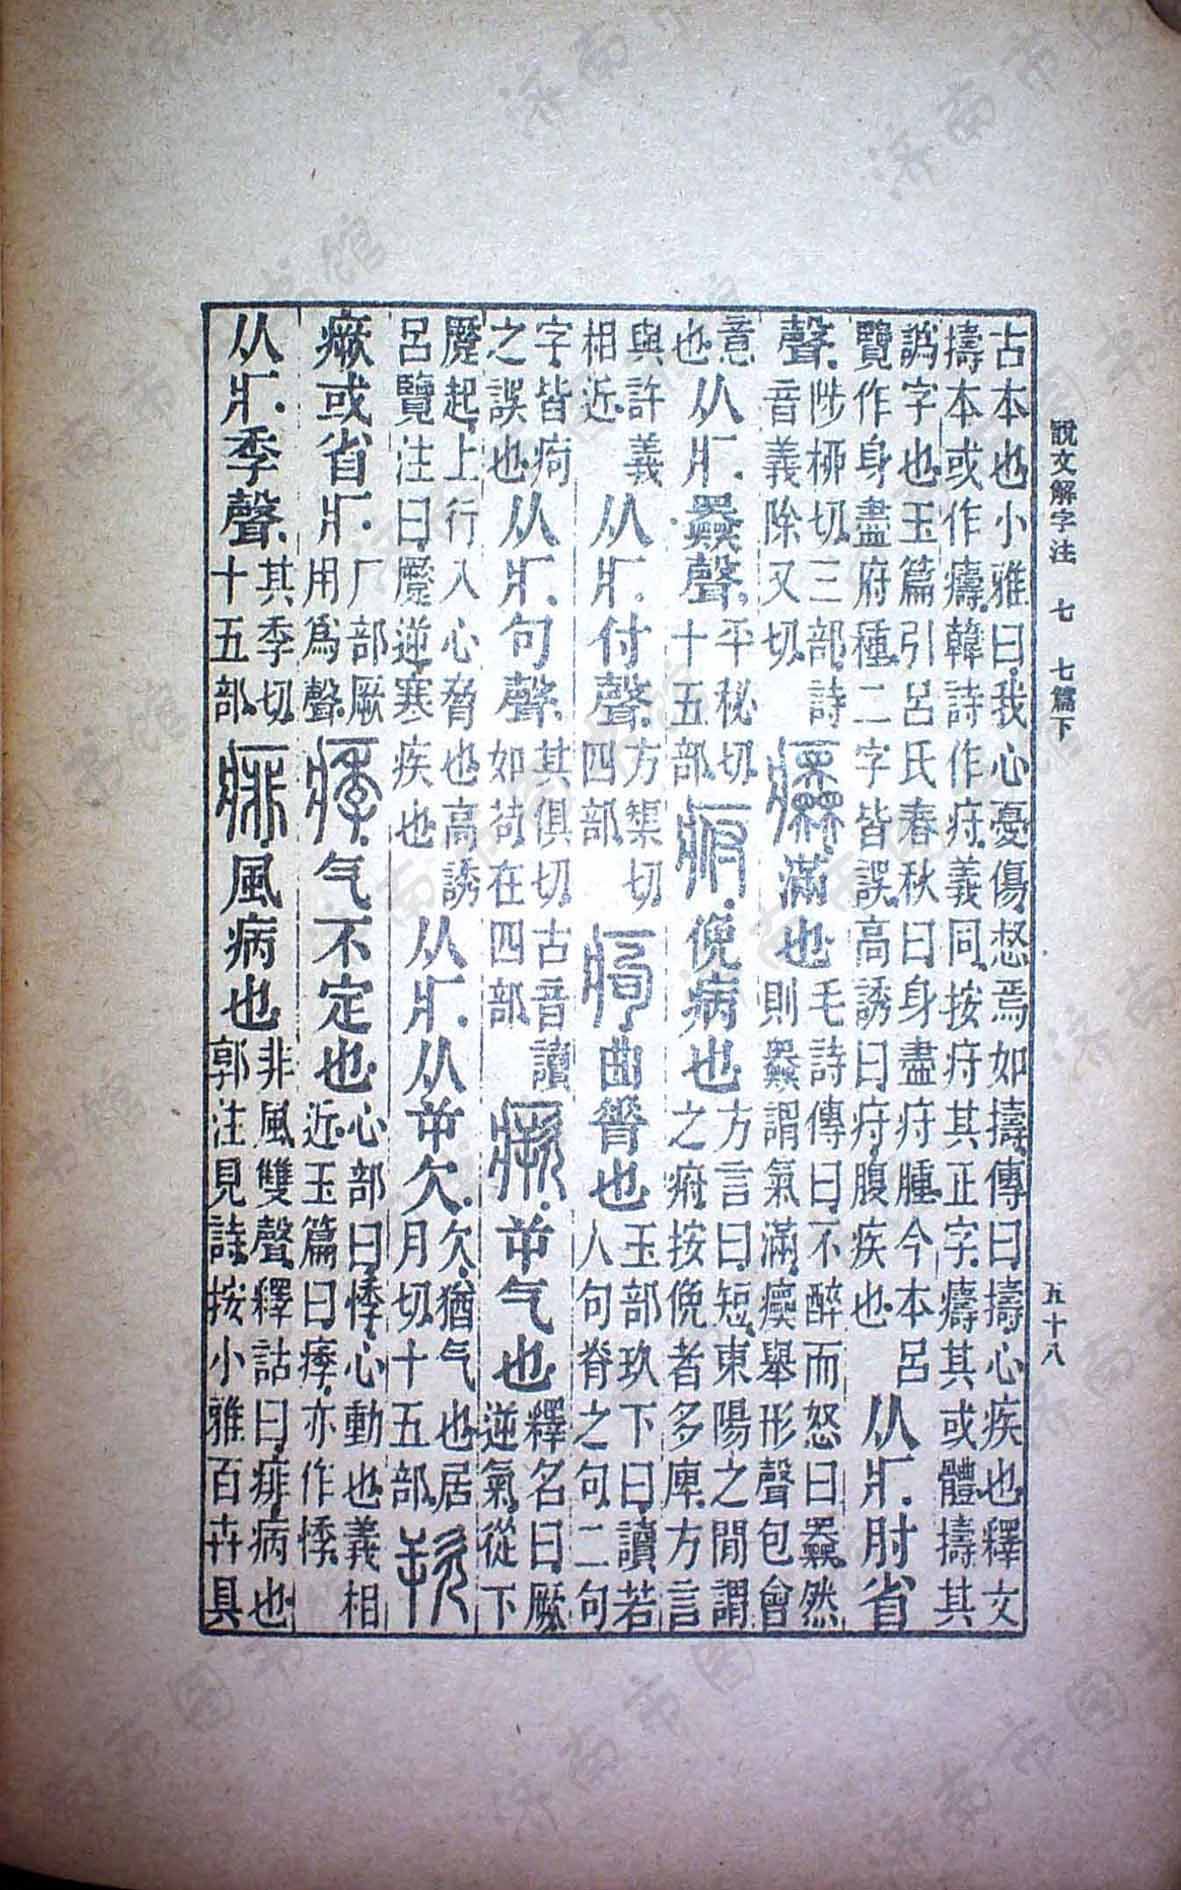 說文解字注 七 七篇下 五十八
古本也小雅曰我心憂傷惄焉如擣傳曰擣心疾也釋文
擣本或作㿒韓詩作疛義同按疛其正字㿒其或體擣其
譌字也玉篇引呂氏春秋曰身盡疛腫今本呂
覽作身盡府種二字皆誤高誘曰疛腹疾也
从疒肘省
聲
陟柳切三部詩
音義除又切
滿也
毛詩傳曰不醉而怒曰奰然
則奰謂氣滿舉形聲包會
意
也
从疒奰聲
平秘切
十五部
㾈俛病也
方言曰短東陽之閒謂
之㾈按俛者多庳方言
與許義
相近
从疒付聲
方榘切
四部
痀曲脊也
玉部玖下曰讀若
人句脊之句二句
字皆痀
之誤也
从疒句聲
其俱切古音讀
如苟在四部
瘚屰气也
釋名曰厥
逆氣從下
蹷起上行入心脅也高誘
呂覽注曰蹷逆寒疾也
从疒从屰欠
欠猶气也居
月切十五部
欮
瘚或省疒
厂部厥
用爲聲
痵气不定也
心部曰悸心動也義相
近玉篇曰痵亦作悸
从疒季聲
其季切
十五部
痱風病也
非風雙聲釋詁曰痱病也
郭注見詩按小雅百卉具
济南市图书馆